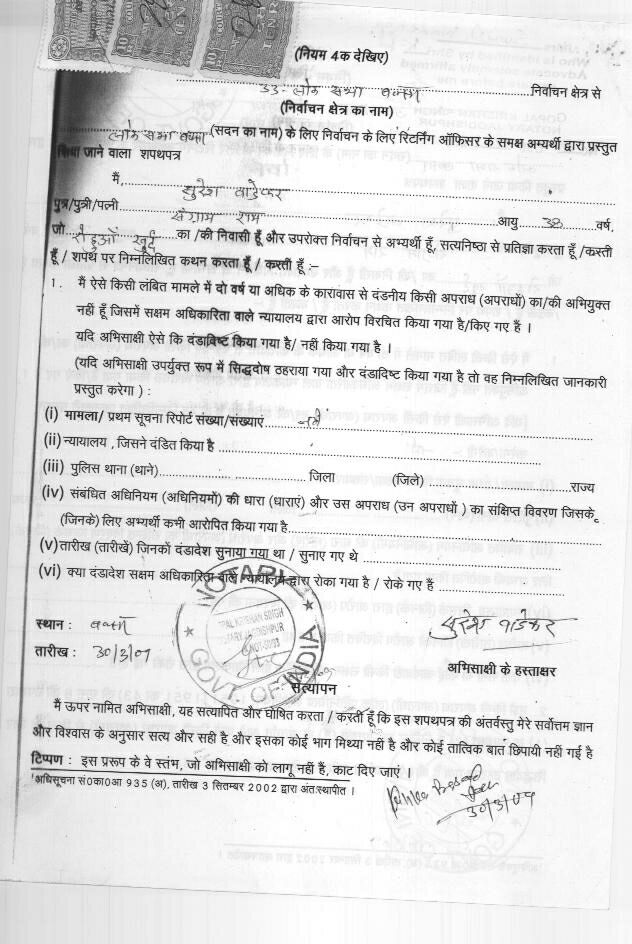 (नियम 4क देखिए)
33-लोक सभा बक्सर निर्वाचन क्षेत्र से
(निर्वाचन क्षेत्र का नाम)
लोक सभा बक्सर (सदन का नाम) के लिए निर्वाचन के लिए रिटर्निंग ऑफिसर के समक्ष अभ्यर्थी द्वारा प्रस्तुत
किया जाने वाला शपथपत्र
मैं, सुरेश वाडेकर
पुत्र/पुत्री/पत्नी संग्राम राम आयु 38 वर्ष,
जो खुर्द का /की निवासी हूँ और उपरोक्त निर्वाचन से अभ्यर्थी हूँ, सत्यनिष्ठा से प्रतिज्ञा करता हूँ /करती
हूँ / शपथ पर निम्नलिखित कथन करता हूँ / करती हूँ :–
1. मैं ऐसे किसी लंबित मामले में दो वर्ष या अधिक के कारावास से दंडनीय किसी अपराध (अपराधों) का/की अभियुक्त
नहीं हूँ जिसमें सक्षम अधिकारिता वाले न्यायालय द्वारा आरोप विरचित किया गया है/किए गए हैं ।
यदि अभिसाक्षी ऐसे कि दंडाविष्ट किया गया है/ नहीं किया गया है ।
(यदि अभिसाक्षी उपर्युक्त रूप में सिद्धदोष ठहराया गया और दंडादिष्ट किया गया है तो वह निम्नलिखित जानकारी
प्रस्तुत करेगा ) :
(i) मामला/ प्रथम सूचना रिपोर्ट संख्या/संख्याएं
(ii) न्यायालय , जिसने दंडित किया है
(iii) पुलिस थाना (थाने) जिला (जिले) राज्य
(iv) संबंधित अधिनियम (अधिनियमों) की धारा (धाराएं) और उस अपराध (उन अपराधों ) का संक्षिप्त विवरण जिसके
(जिनके) लिए अभ्यर्थी कभी आरोपित किया गया है
(v) तारीख (तारीखे) जिनको दंडादेश सुनाया गया था / सुनाए गए थे
(vi) क्या दंडादेश सक्षम अधिकारिता वाले न्यायालय द्वारा रोका गया है / रोके गए हैं
NOTARY
GOPAL KRISHAN SINGH
GOVT. OF INDIA
स्थान : बक्सर
सुरेश वाडेकर
तारीख : 30/3/09
अभिसाक्षी के हस्ताक्षर
सत्यापन
मैं ऊपर नामित अभिसाक्षी, यह सत्यापित और घोषित करता / करती हूँ कि इस शपथपत्र की अंतर्वस्तु मेरे सर्वोत्तम ज्ञान
और विश्वास के अनुसार सत्य और सही है और इसका कोई भाग मिथ्या नहीं है और कोई तात्विक बात छिपायी नहीं गई है
टिप्पण : इस प्ररूप के वे स्तंभ, जो अभिसाक्षी को लागू नहीं है, काट दिए जाएं ।
¹अधिसूचना सं0का0आ 935 (अ), तारीख 3 सितम्बर 2002 द्वारा अंतःस्थापीत ।
30/3/09